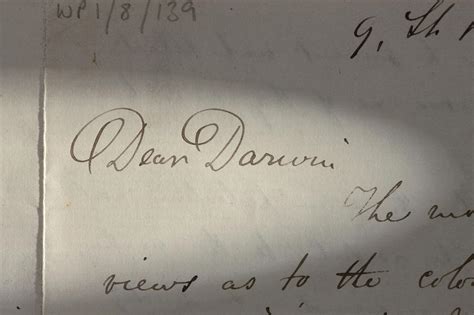 WP1/8/139
9, St
Dear Darwin
The mo
views as to the colo